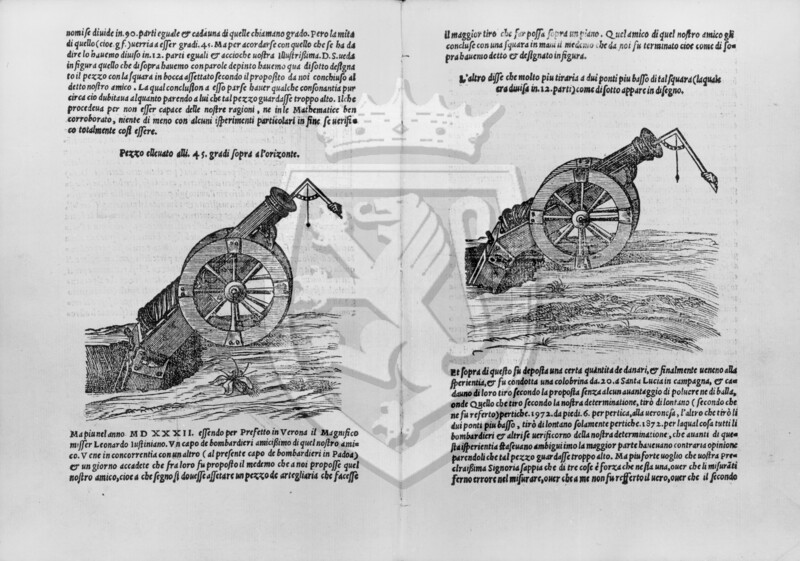 uomi se diuide in .90. parti eguale & cadauna di quelle chiamano grado. Pero la mita
di quello (cioe g f.) uerria a esser gradi .45. Ma per acordarse con quello che se ha da
dire lo hauemo diuiso in .12. parti eguali & accioche uostra Illustrissima. D. S. ueda
in figura quello che di sopra hauemo con parole depinto hauemo qua di sotto designa
to il pezzo con la squara in bocca assettato secondo il proposito da noi conchiuso al
detto nostro amico. La qual conclusion a esso parse hauer qualche consonantia pur
circa cio dubitaua alquanto parendo a lui che tal pezzo guardasse troppo alto. Ilche
procedeua per non esser capace delle nostre ragioni, ne in le Mathematice ben
corroborato, niente di meno con alcuni isperimenti particolari in fine se uerifi-
co totalmente cosi essere.
Pezzo elleuato alli. 45. gradi sopra a l'orizonte.
Ma piu nel anno M D XXXII. essendo per Prefetto in Verona il Magnifico
misser Leonardo Iustiniano. Vn capo de bombardieri amicissimo di quel nostro ami-
co. Vene in concorrentia con un altro (al presente capo de bombardieri in Padoa)
& un giorno accadete che fra loro fu proposto il medemo che a noi propose quel
nostro amico, cioe a che segno si douesse assetare un pezzo de artegliaria che facesse
il maggior tiro che far possa sopra un piano. Quel amico di quel nostro amico gli
concluse con una squara in mani il medemo che da noi fu terminato cioe come di so-
pra hauemo detto & designato in figura.
L'altro disse che molto piu tiraria a dui ponti piu basso di tal squara (la quale
era diuisa in .12. parti) come di sotto appare in disegno.
Et sopra di questo fu deposta una certa quantita de danari, & finalmente ueneno alla
sperientia, & fu condotta una colobrina da .20. a Santa Lucia in campagna, & ca-
dauno di loro tiro secondo la proposta senza alcun auantaggio di poluere ne di balla,
onde Quello che tiro secondo la nostra determinatione, tirò di lontano (secondo che
ne fu referto) pertiche .1972. da piedi .6. per pertica, alla ueronesa, l'altro che tirò li
dui ponti piu basso, tirò di lontano solamente pertiche .1872. per la qual cosa tutti li
bombardieri & altri se uerificorno della nostra determinatione, che auanti di que-
sta isperientia staseuano ambigui imo la maggior parte haueuano contraria opinione
parendoli che tal pezzo guardasse troppo alto. Ma piu forte uoglio che uostra Pre
claraissima Signoria sappia che di tre cose è forza che ne sia una, ouer che li misurāti
ferno errore nel misurare, ouer che a me non fu refferto il uero, ouer che il secondo